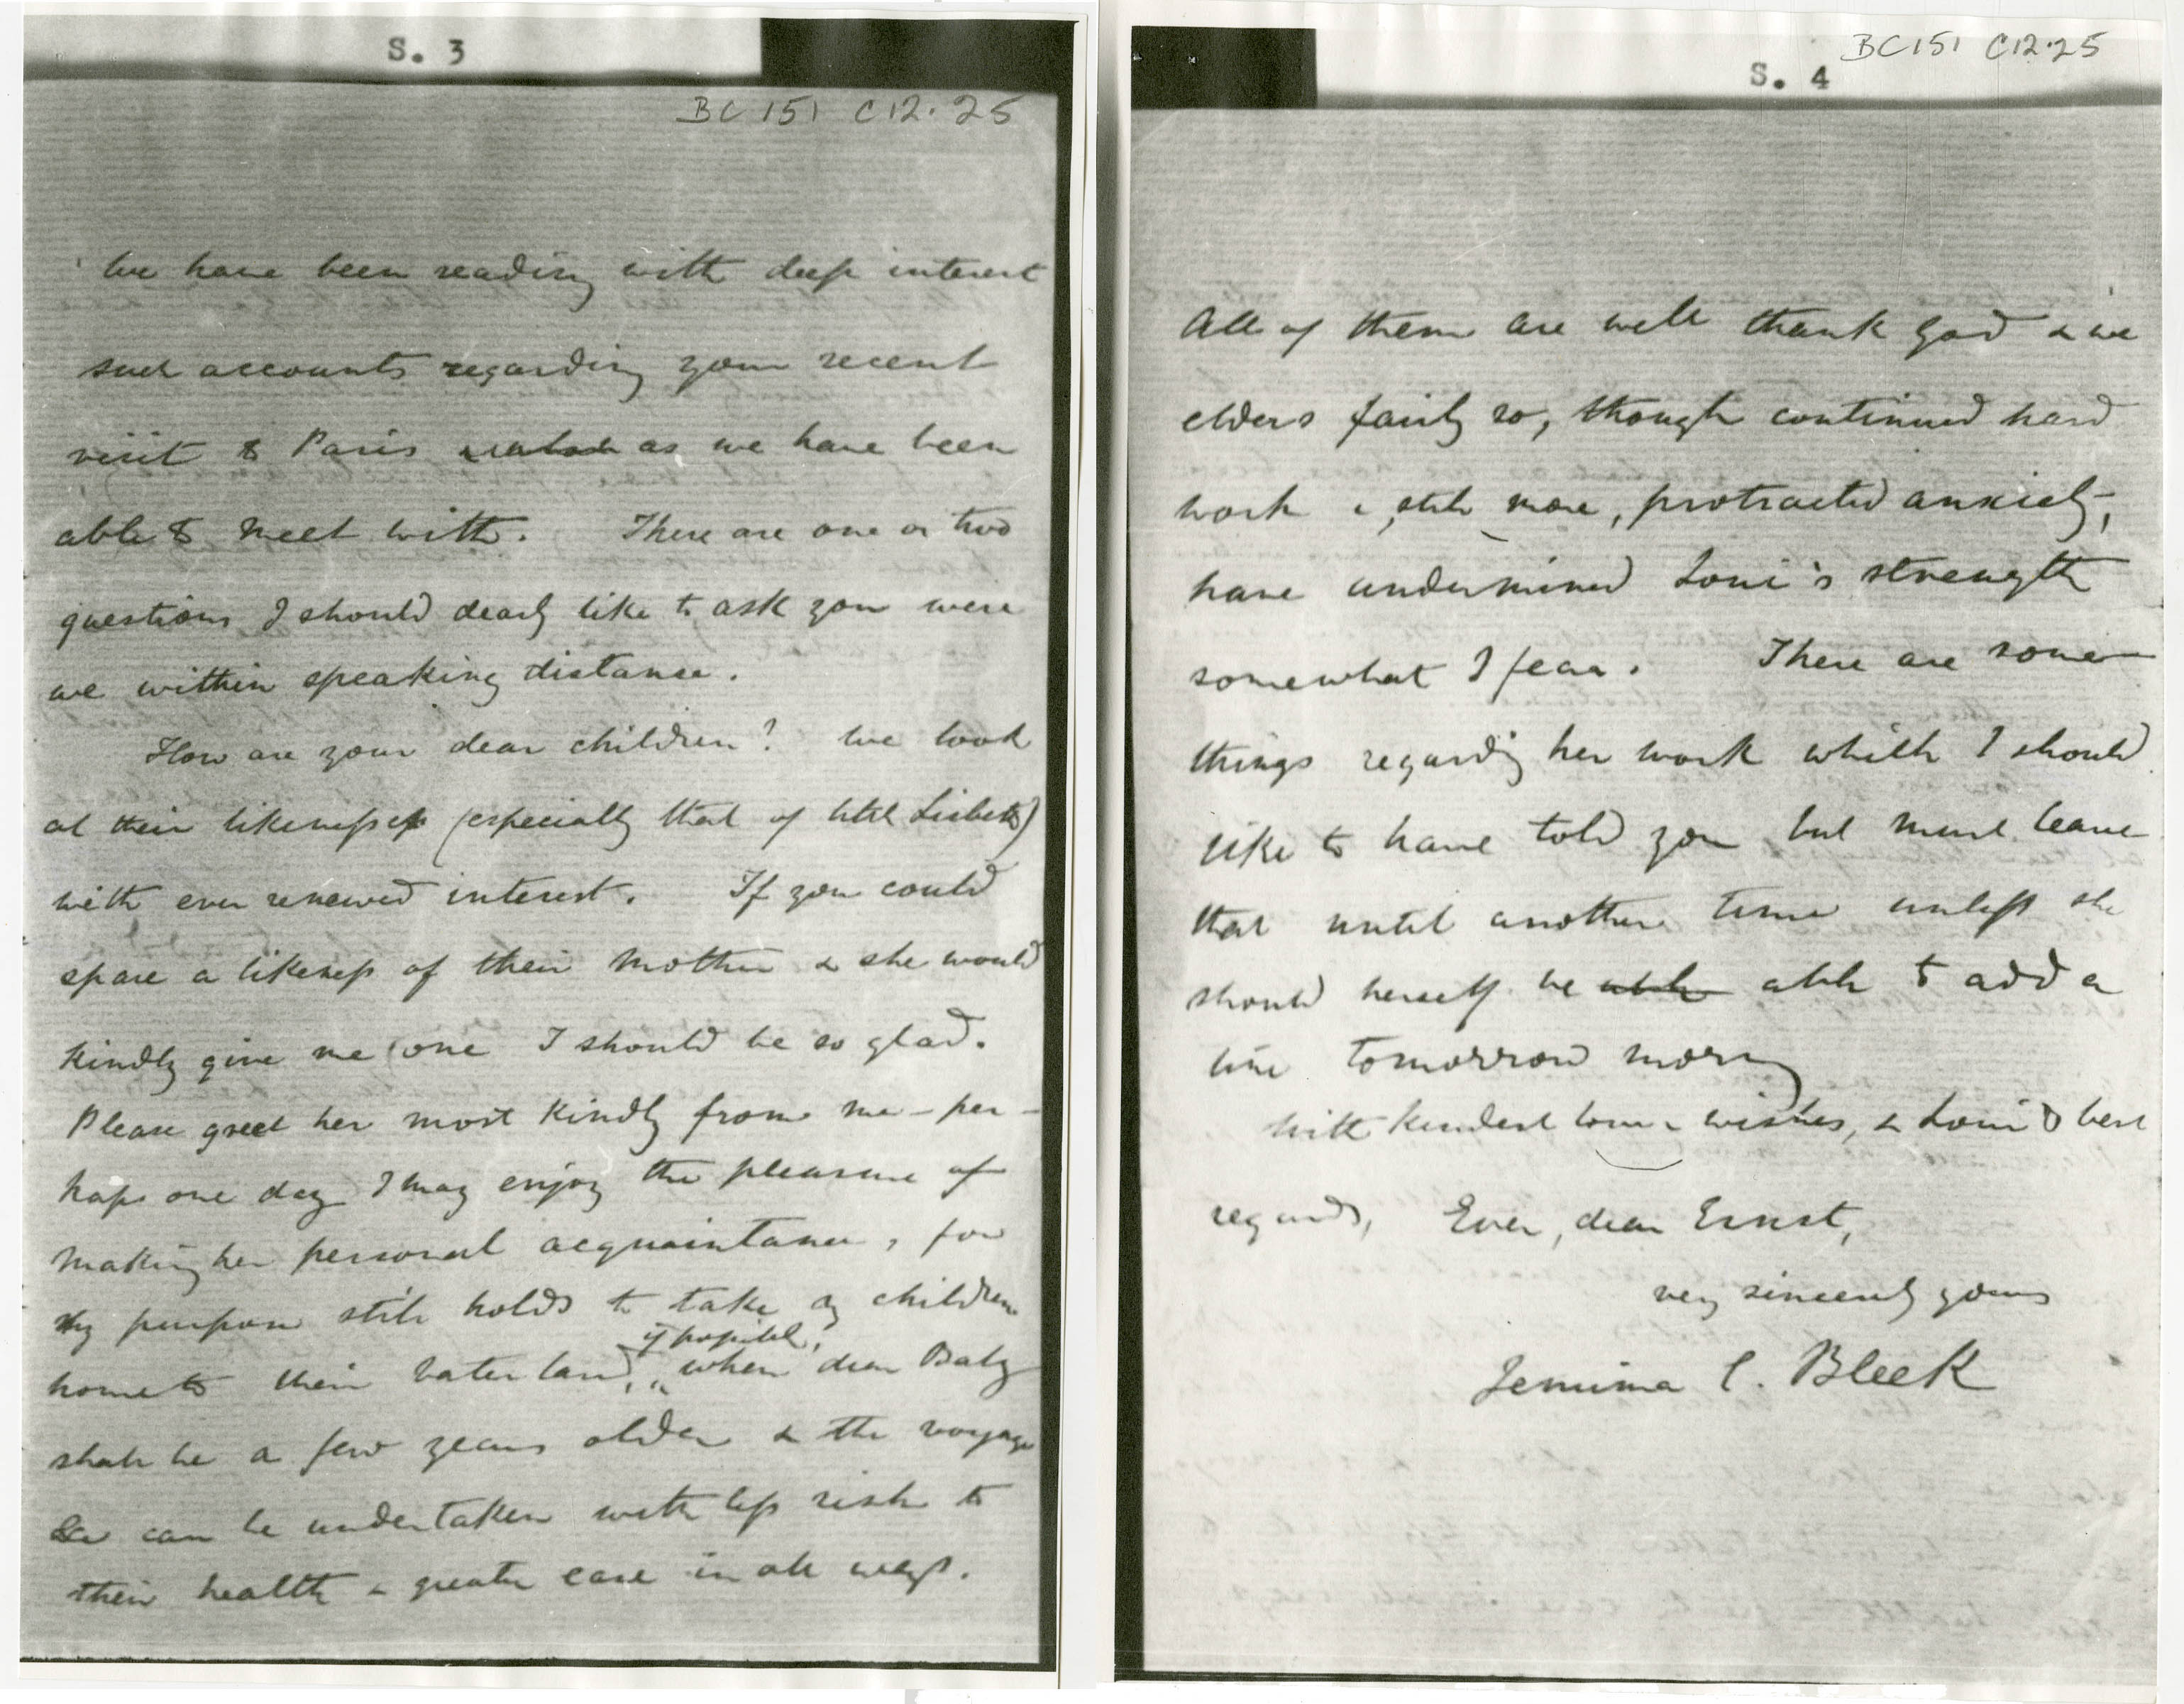 S. 3
BC 151 C12.25
We have been reading with deep interest
such accounts regarding your recent
visit to Paris as we have been
able to meet with. There are one or two
questions I should dearly like to ask you were
we within speaking distance.
How are your dear children? We look
at their likenesses (especially that of little Lisbeth)
with ever renewed interest. If you could
spare a likeness of their Mother & she would
kindly give me one I should be so glad.
Please greet her most kindly from me – per-
haps one day I may enjoy the pleasure of
making her personal acquaintance, for
my purpose still holds to take my children
home to their Vaterland, if possible, when dear Baby
shall be a few years older & the voyage
can be undertaken with less risk to
their health & greater ease in all ways.
S. 4
BC 151 C12.25
All of them are well thank God & we
elders fairly so, though continued hard
work & still more, protracted anxiety,
have undermined Loui's strength
somewhat I fear. There are some
things regarding her work which I should
like to have told you but must leave
that until another time unless she
should herself be able able to add a
line tomorrow morng
With kindest love & wishes, & Loui's best
regards, Ever, dear Ernst,
very sincerely yours
Jemima C. Bleek